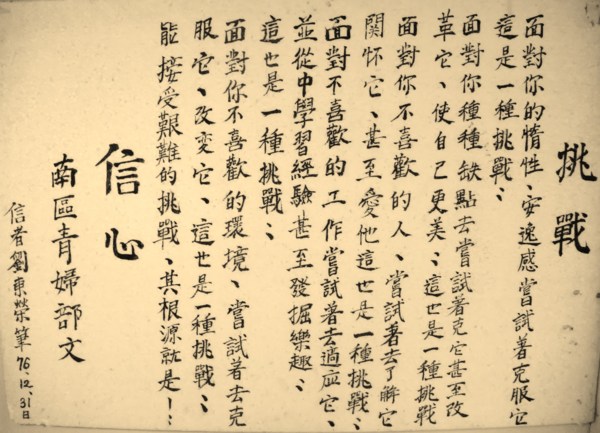 挑戰
面對你的惰性、安逸感嘗試著克服它
這是一種挑戰：
面對你種種缺點去嘗試著克它甚至改
革它、使自己更美：這也是一種挑戰
面對你不喜歡的人、嘗試著去了解它
關怀它、甚至愛他這也是一種挑戰：
面對不喜歡的工作嘗試著去適应它、
並從中學習經驗甚至發掘樂趣：
這也是一種挑戰：
面對你不喜歡的環境、嘗試著去克
服它、改变它、這也是一種挑戰：
能接受艱難的挑戰、其根源就是！：
信心
南區青婦部文
信者劉東榮筆 76.12.31日